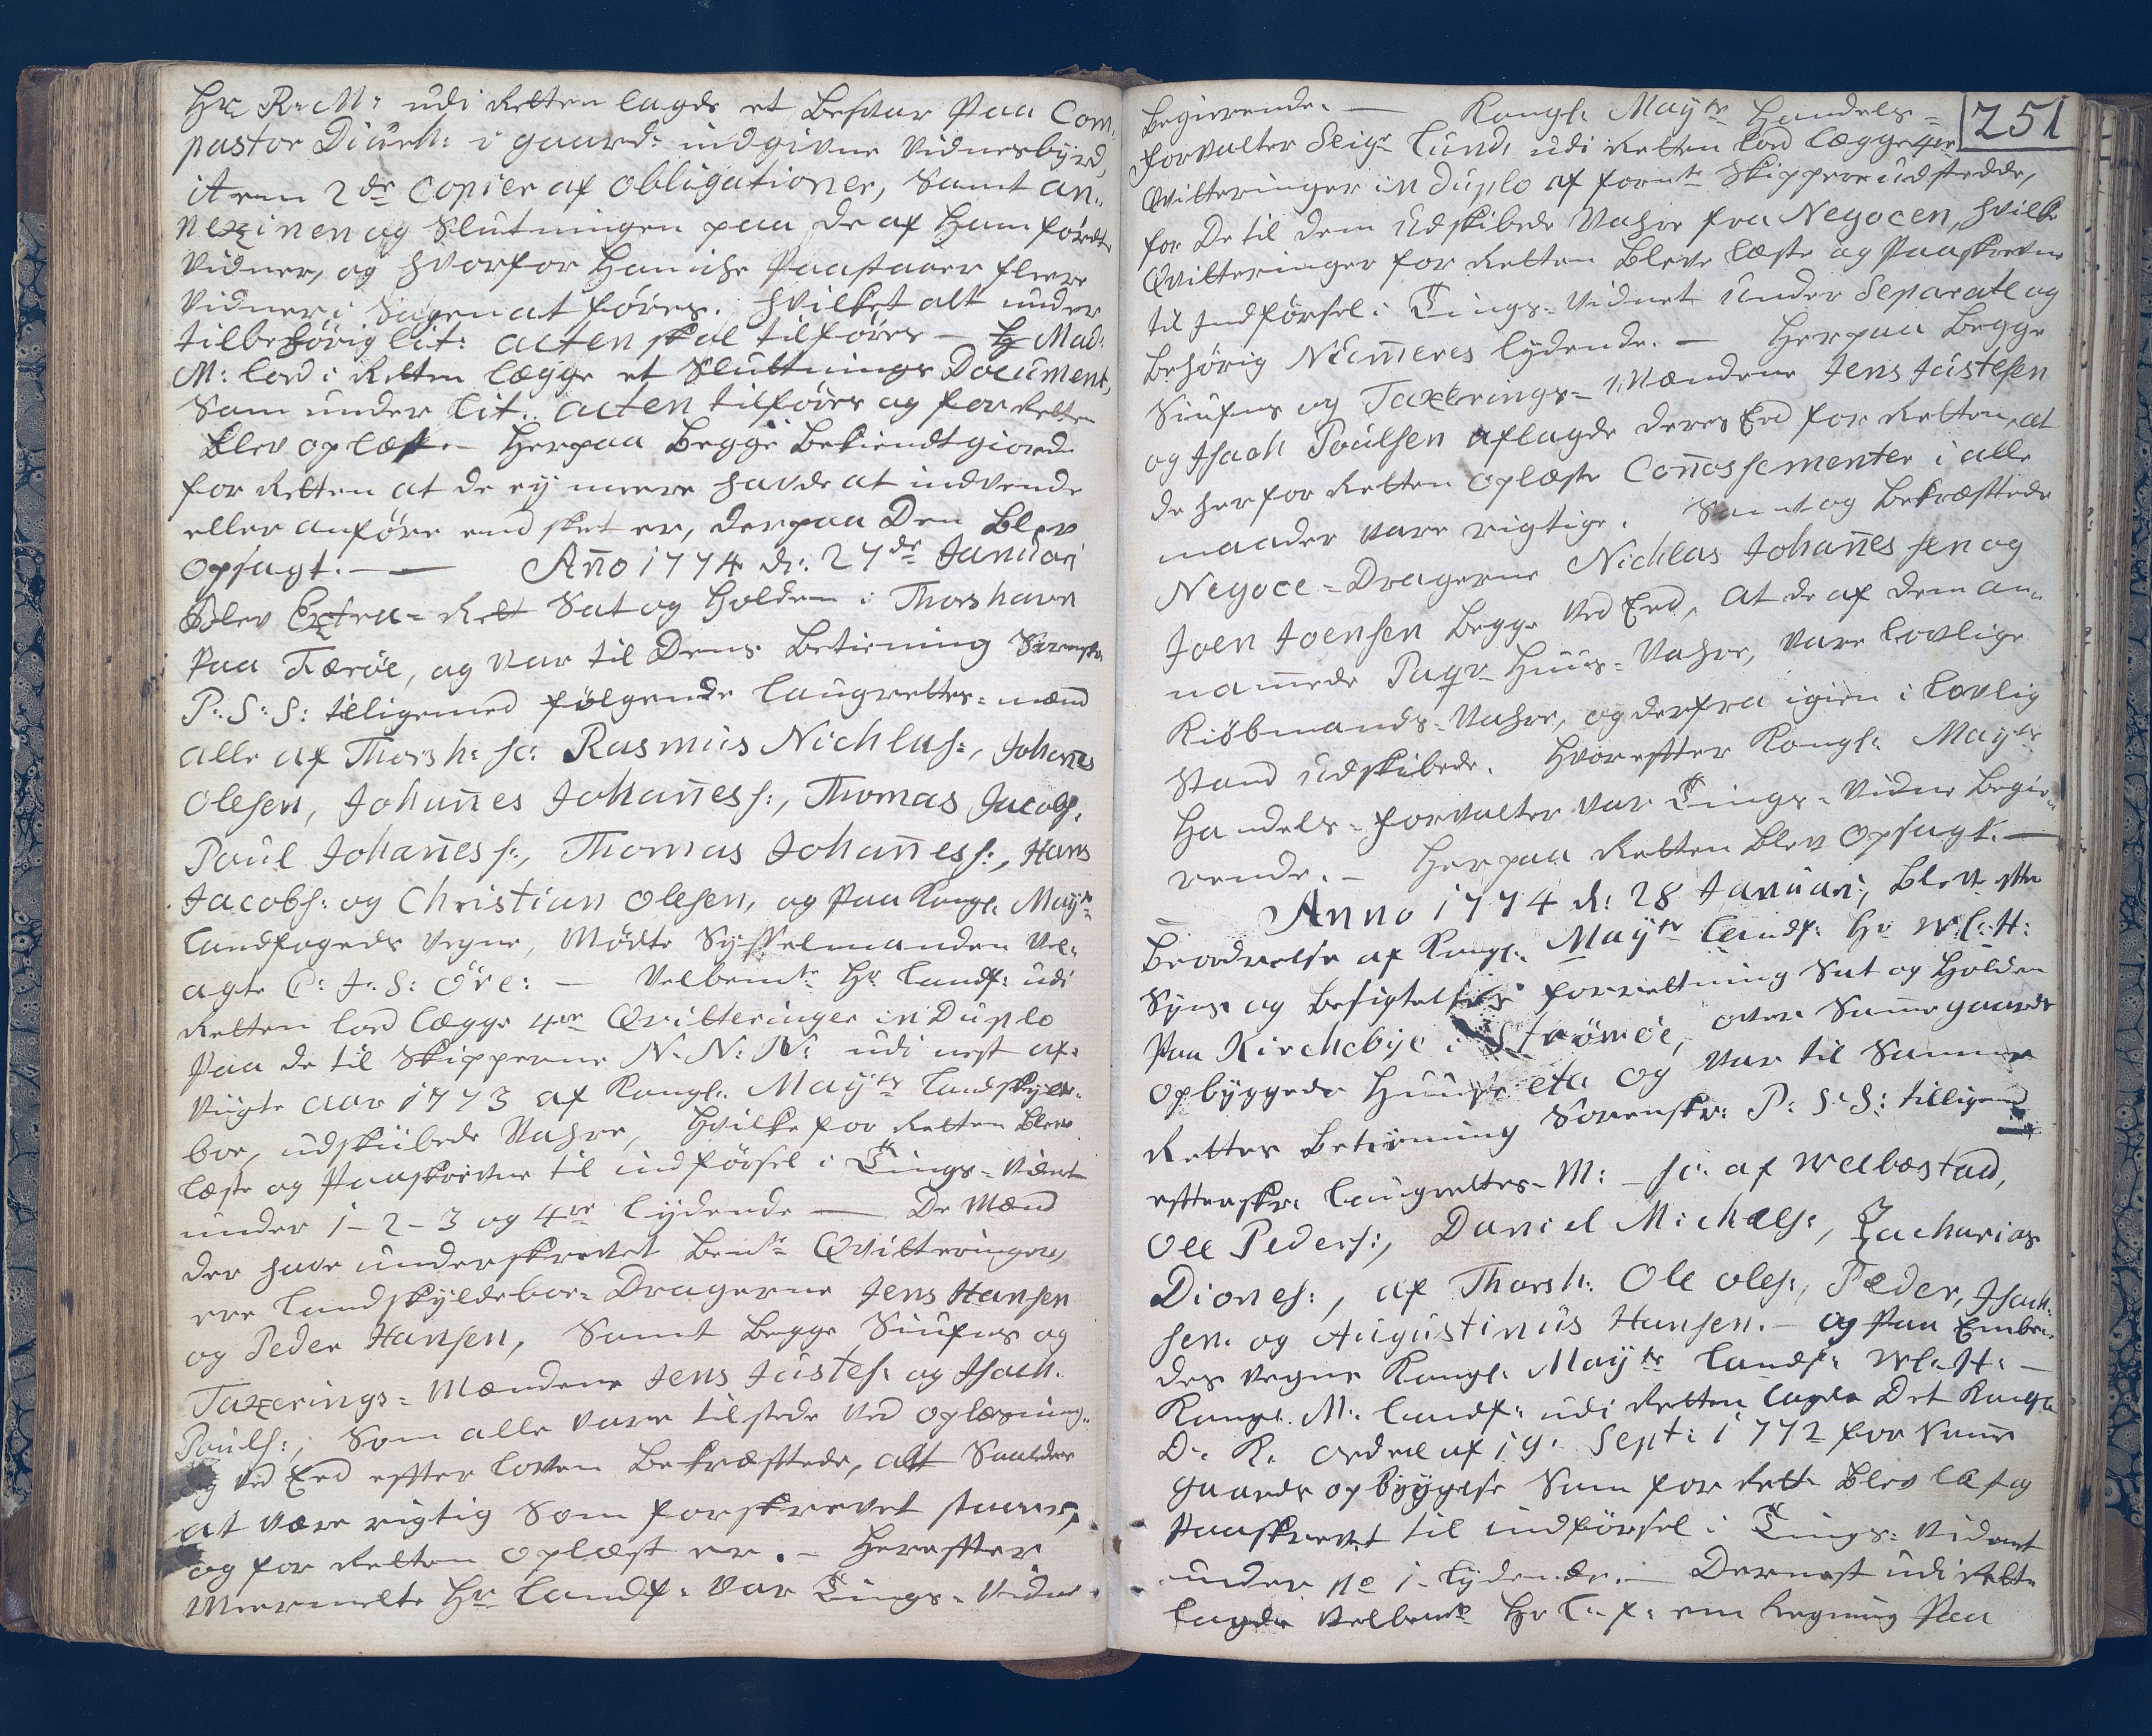 Hr R: M: udi Retten lagde et Besvar paa Com:
pastor Diurh: i gaard: indgivne Vidnesbyrd,
item 2de Copier af obligationer, samt an,,
nexinen og Slutningen paa de af Ham førdte
Vidner, og hvorfor Han iche paastaaer fleere
Vidner i Sagen at føres. hvilket alt under
tilbehørig lit: acten skal tilføres — Hr Mad:
M: lod i Retten lægge et Sluttnings Document,
som under lit: acten tilføres og for Retten
blev oplæst. — Herpaa Begge Bekiendtgiorde
for Retten at de ey meere havde at indvende
eller anføre end sket er, derpaa Den blev
opsagt. — Año 1774 d: 27de Januari
Blev Extra-Ret Sat og Holden i Thorshavn
paa Færöe, og var til Dens Betiening Sorenskr.
P: S: S: tilligemed følgende laugrettes-mænd
alle af Thorsh: sc: Rasmus Nichlas:, Johañes
Olesen, Johañes Johañess:, Thomas Jacobs:
Poul Johañess:, Thomas Johañess:, Hans
Jacobs: og Christian Olesen, og paa Kongl: Mayts
Landfogeds Vegne, Mødte Sysselmanden Vel,,
agte C: J: S: Öre: — Velbemte Hr Landf: udi
Retten lod lægge 4re Qvitteringer in Duplo
paa de til Skipperne N: N: N: udi nest af,,
vigte aar 1773 af Kongl: Mayts Landskylds,,
boe, udskibede Vahre, hvilke for Retten blev
læste og paaskrevne til indførsel i Tings-Vidnet
under 1-2-3 og 4re lydende — De Mænd
der have underskrevet bemte Qvitteringer,
ere Landskyldeboe-Dragerne Jens Hansen
og Peder Hansen, samt begge Siufns og
Taxerings-Mændene Jens Justes: og Isach
Pouls:, som alle vare tilstede ved oplæsning,,
og ved Eed effter loven bekræfttede, alt saaledes
at være rigtig som forskrevet staaer,
og for Retten oplæst er. — Hereffter
Meermelte Hr Landf: var Tings-Vidne
251
begierende. — Kongl: Mayts Handels-
forvalter Seigr Lund, udi Retten lod lægge 4re
Qvitteringer in duplo af fornte Skippere udstedde,
for De til dem udskibede Vahre fra Negocen, hvilke
Qvitteringer for Retten bleve læste og paaskrevne
til Indførsel i Tings-Vidnet under Separate og
behørig Numeres lydende. — Herpaa begge
Siufns og Taxerings-Mændene Jens Justesen
og Isach Poulsen aflagde deres Eed for Retten, at
de her for Retten oplæste Conossementer i alle
maader vare rigtige. Samt og bekræfttede
Negoce-Dragerne Nichlas Johañessen og
Joen Joensen begge ved Eed, at de af dem an,,
namede Paqv Huus-Vahre, vare lovlige
Kiøbmands-Vahre, og derfra igien i lovlig
stand udskibede. Hvoreffter Kongl: Mayts
Handels-forvalter var Tings-Vidne begie,,
rende. — Herpaa Retten blev opsagt. —
Anno 1774 d: 28 Januari, blev effter
Beordrelse af Kongl: Mayts Landf: Hr W: H:
Syns og Besigtelses forrettning Sat og Holden
paa Kirchebye i Strömöe, over Samme gaards
opbyggede Huuse etc. og var til Samme
Rettes betiening Sorenskr: P: S: S: tilligemed
effterskr: laugrettes-M: — sc: af Welbæstad,
Ole Peders:, Daniel Michels:, Zacharias
Diones:, af Thorsh: Ole Oles:, Peder Isach,,
sen: og Augustinus Hansen. — og paa Embe,,
des Vegne Kongl: Mayts Landf: W: H: —
Kongl: M: Landf: udi Retten lagde Det Kongl:
D: K: ordre af 19: Sept: 1772 for Samme
gaards opbyggelse som for Rette blev læst og
paaskrevet til indførsel i Tings-Vidnet
under No 1 - lydende. — Dernæst udi Rette
lagde Velbemte Hr L: f: een Regning paa